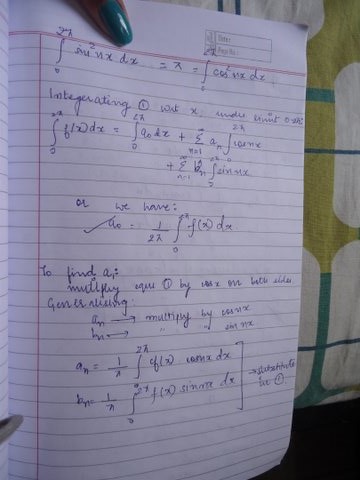 ∫₀^2π sin²nx dx = π = ∫₀^2π cos²nx dx.
Integerating ① wrt x, under limit 0 → 2π
∫₀^2π f(x) dx = ∫₀^2π a₀ dx + Σ_{n=1}^∞ aₙ ∫₀^2π cosnx
+ Σ_{n=1}^∞ bₙ ∫₀^2π sinnx
or we have:
a₀ = 1/2π ∫₀^2π f(x) dx.
To find a₁:
multiply eqn ① by cosx on both sides
Generalising:
aₙ → multiply by cosnx
bₙ → " " sin nx
aₙ = 1/π ∫₀^2π f(x) cosnx dx
bₙ = 1/π ∫₀^2π f(x) sinnx dx
→ substitute
in ①.